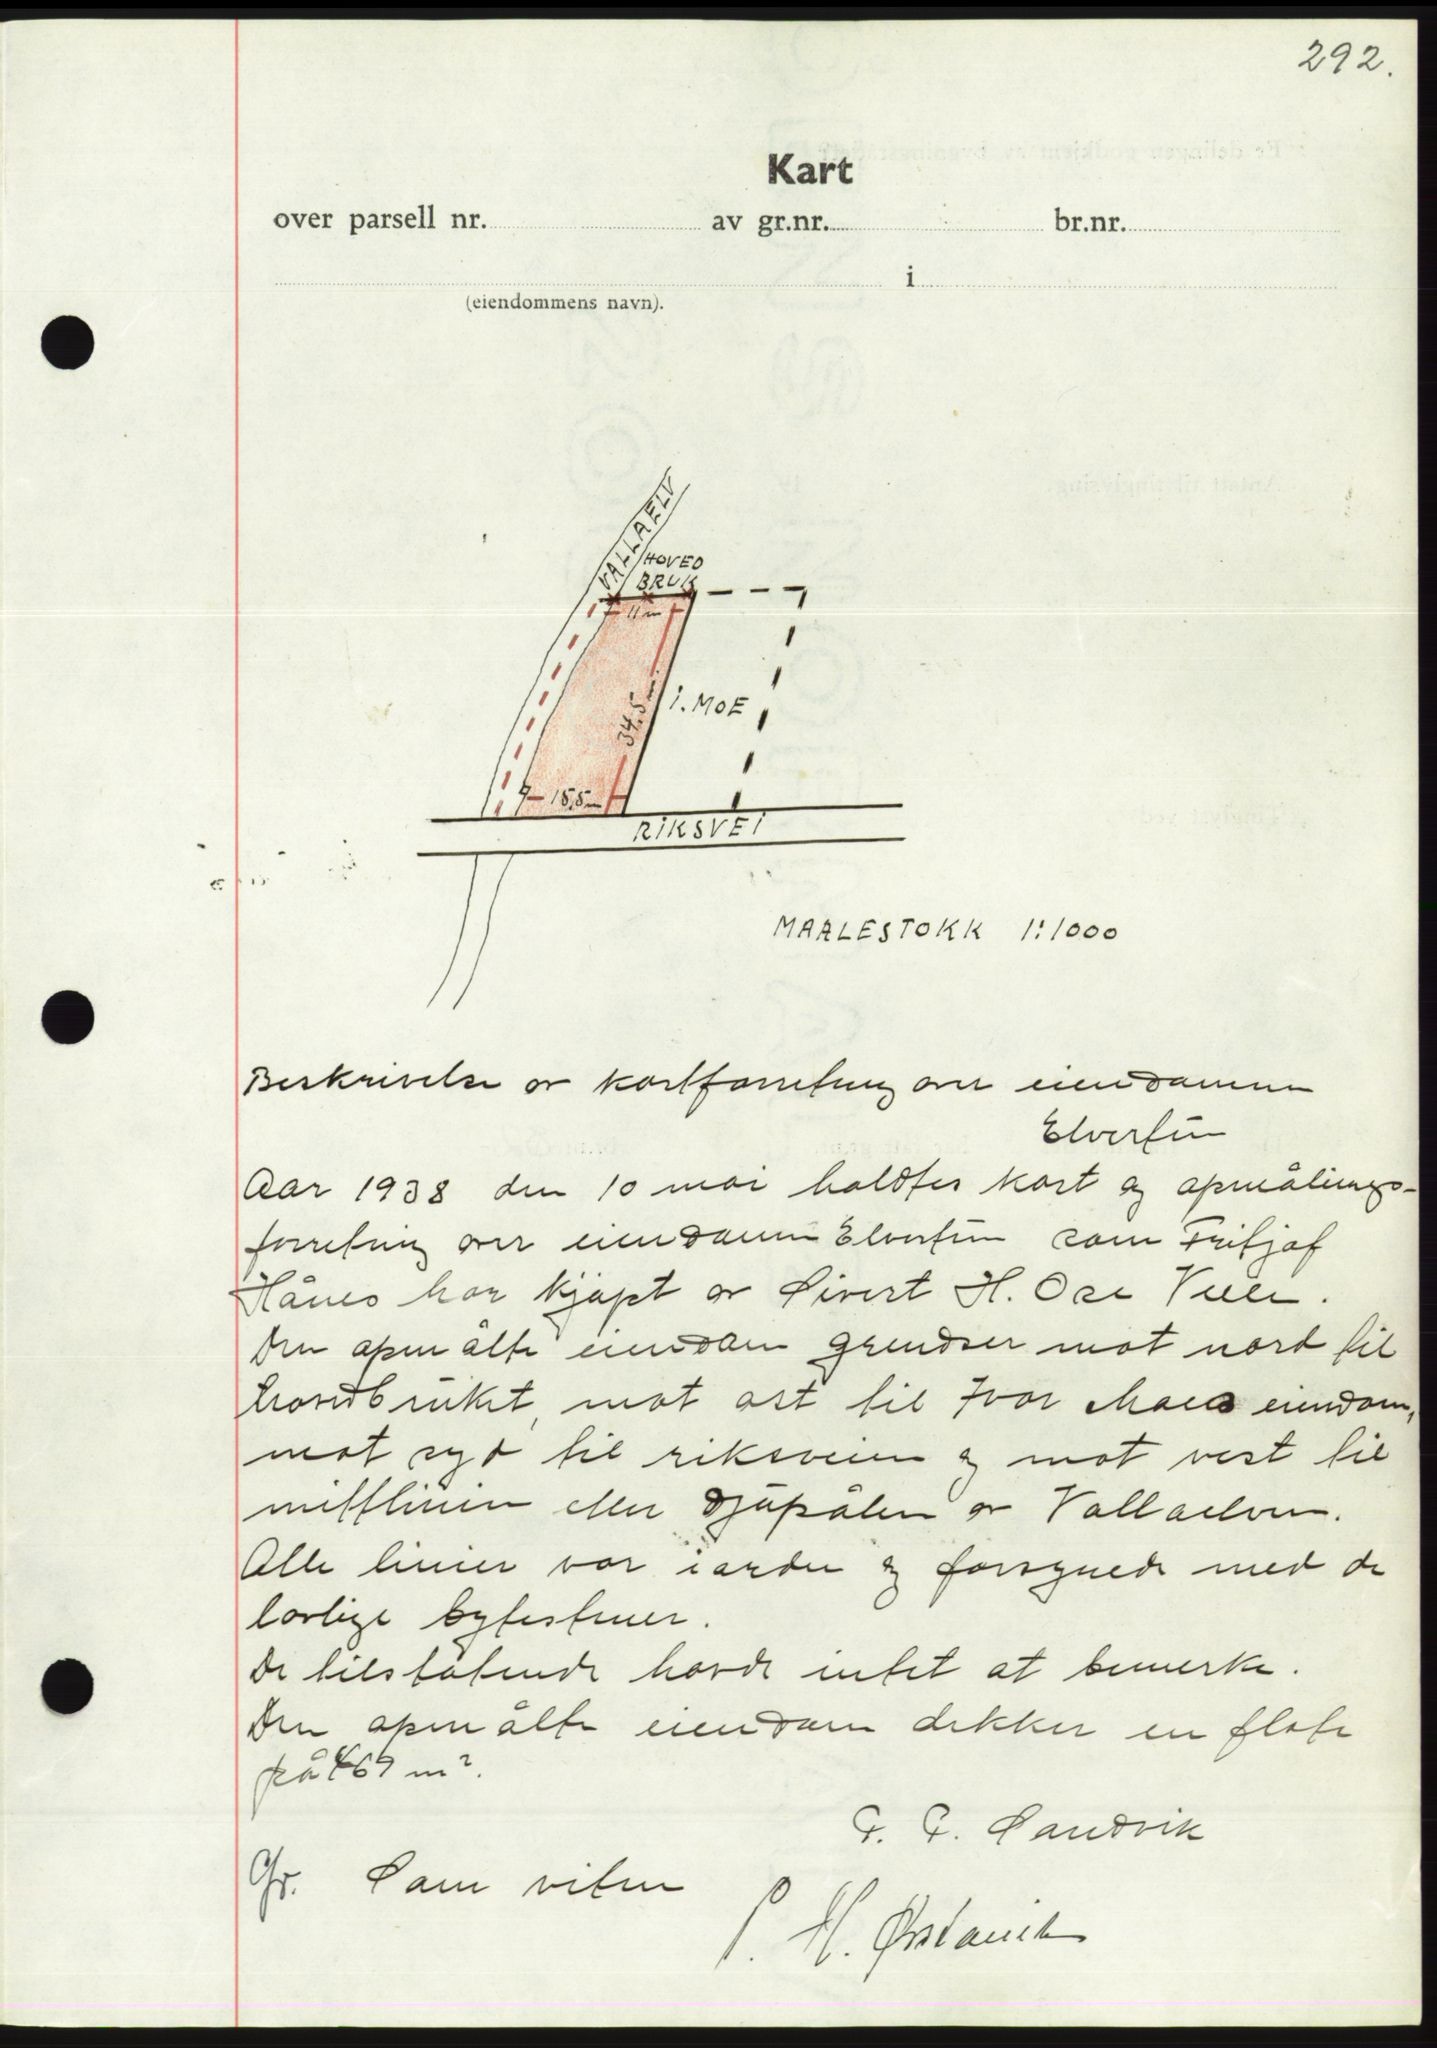 292.
Kart
over parsell nr. av gr.nr. br.nr.
i
(eiendommens navn).
VALLAELV
HOVED
BRUK
11 m
34,5 m
I. MOE
15,5 m
RIKSVEI
MAALESTOKK 1:1000
Beskrivelse av kartforretning over eiendommen
Elvertun
Aar 1938 den 10 mai holdtes kart og opmålings-
forretning over eiendommen Elvertun som Fritjof
Hånes har kjøpt av Sivert H. Ose
Den opmålte eiendom grendser mot nord til
hovedbruket, mot øst til Ivar Moes eiendom,
mot syd til riksveien og mot vest til
mittlinien eller djupålen av Vallaelven.
Alle linier var i orden og forsynede med de
lovlige bytestener.
De tilstøtende havde intet at bemerke.
Den opmålte eiendom dekker en flate
på 467 m².
P. P. Sandvik
Gr. Som viten
P. H. Østanvik